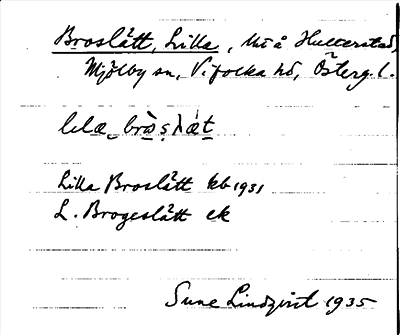 Broslätt, Lilla, u̅i å Hulterstad,
Mjölby sn, Vifolka hd, Österg. l.
lılæ bròṣλät
Lilla Broslätt kb 1931
L. Brogeslätt ek
Sune Lindqvist 1935